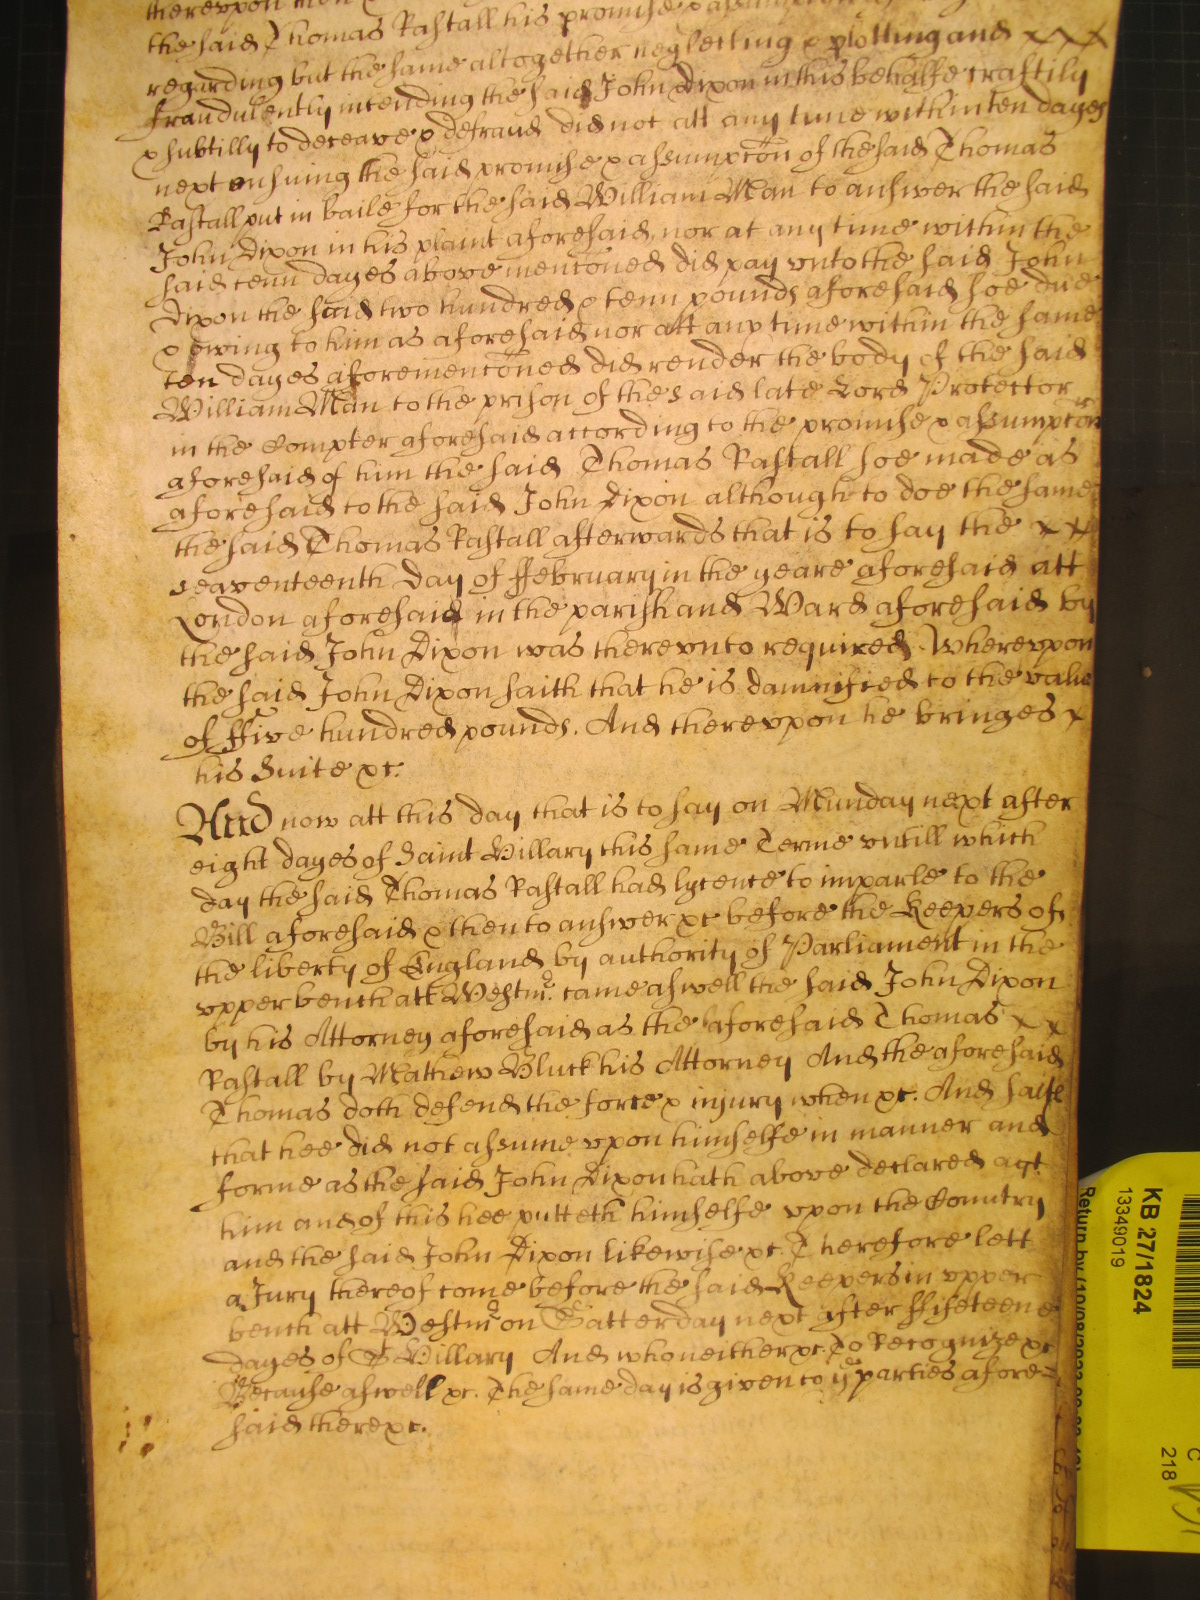 thereupon
the said Thomas Rastall his promise & assumpcon
regarding but the same altogether neglecting & plotting and x x x
fraudulently intending the said John Dixon in this behalfe craftily
& subtilly to deceave & defraud did not att any tyme within ten dayes
next ensuing the said promise & assumpcon of the said Thomas
Rastall put in baile for the said William Man to answer the said
John Dixon in his plaint aforesaid, nor at any time within the
said tenn dayes above mentoned did pay unto the said John
Dixon the said two hundred & tenn pounds aforesaid soe due
& owing to him as aforesaid nor att any time within the same
ten dayes aforementoned did render the body of the said
William Man to the prison of the said late Lord Protector
in the Compter aforesaid according to the promise & assumpcon
aforesaid of him the said Thomas Rastall soe made as
aforesaid to the said John Dixon although to doe the same
the said Thomas Rastall afterwards that is to say the x x
seaventeenth day of ffebruary in the yeare aforesaid att
London aforesaid in the parish and Ward aforesaid by
the said John Dixon was thereunto required. Whereupon
the said John Dixon saith that he is damnified to the value
of ffive hundred pounds. And thereupon he bringes x
his Suite &c.
And now att this day that is to say on Munday next after
eight dayes of Saint Hillary this same Terme untill which
day the said Thomas Rastall had lycence to imparle to the
Bill aforesaid & then to answer &c before the Keepers of
the liberty of England by authority of Parliament in the
upper bench att Westmr. came aswell the said John Dixon
by his Attorney aforesaid as the aforesaid Thomas x x
Rastall by Mathew Bluck his Attorney And the aforesaid
Thomas doth defend the force & injury when &c. And saith
that hee did not assume upon himselfe in manner and
forme as the said John Dixon hath above declared agt
him and of this hee putteth himselfe upon the Country
and the said John Dixon likewise &c. Therefore lett
a Jury thereof come before the said Keepers in upper
bench att Westmr on Satterday next after ffifeteene
dayes of St Hillary And who neither &c. To Recognize &c
Because aswell &c. The same day is given to ye parties afore=
said there &c.
KB 27/1824
13349019
Return by
C
218